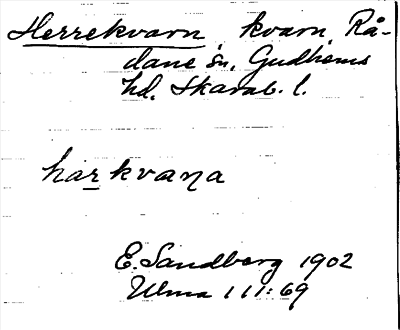 Herrekvarn, kvarn, Rå-
dane sn, Gudhems
hd, Skarab. l.
harkvana
E. Sandberg 1902
Ulma 111:69